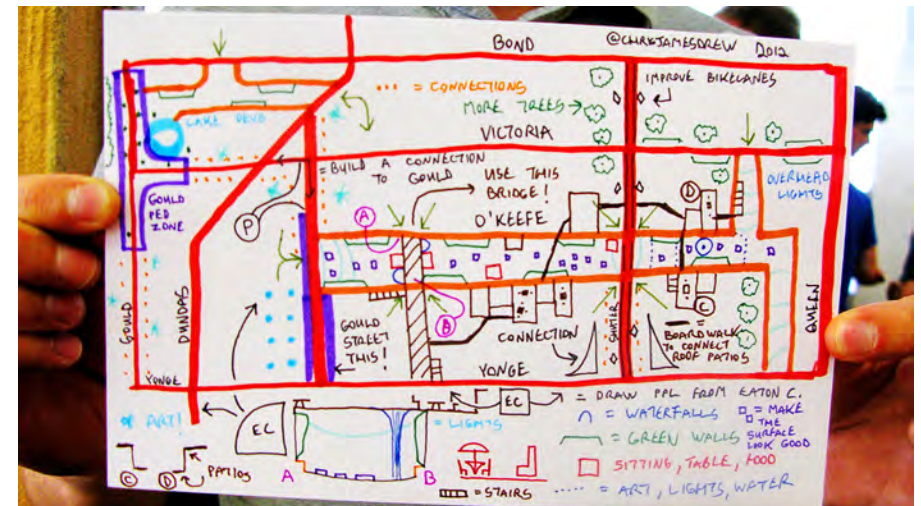 BOND
@CHRISJAMESDREW 2012
= CONNECTIONS
IMPROVE BIKELANES
MORE TREES
LAKE DEVO
VICTORIA
= BUILD A CONNECTION
TO GOULD
USE THIS
BRIDGE!
OVERHEAD
LIGHTS
GOULD
PED
ZONE
P
A
O'KEEFE
D
GOULD
DUNDAS
GOULD
STREET
THIS!
B
CONNECTION
SHUTER
C
=
BOARDWALK
TO CONNECT
ROOF PATIOS
QUEEN
YONGE
YONGE
* ART!
EC
EC
= DRAW PPL FROM EATON C.
= LIGHTS
= WATERFALLS
= MAKE
THE
SURFACE
LOOK GOOD
= GREEN WALLS
SITTING, TABLE, FOOD
C
D
PATIOS
A
B
= STAIRS
= ART, LIGHTS, WATER